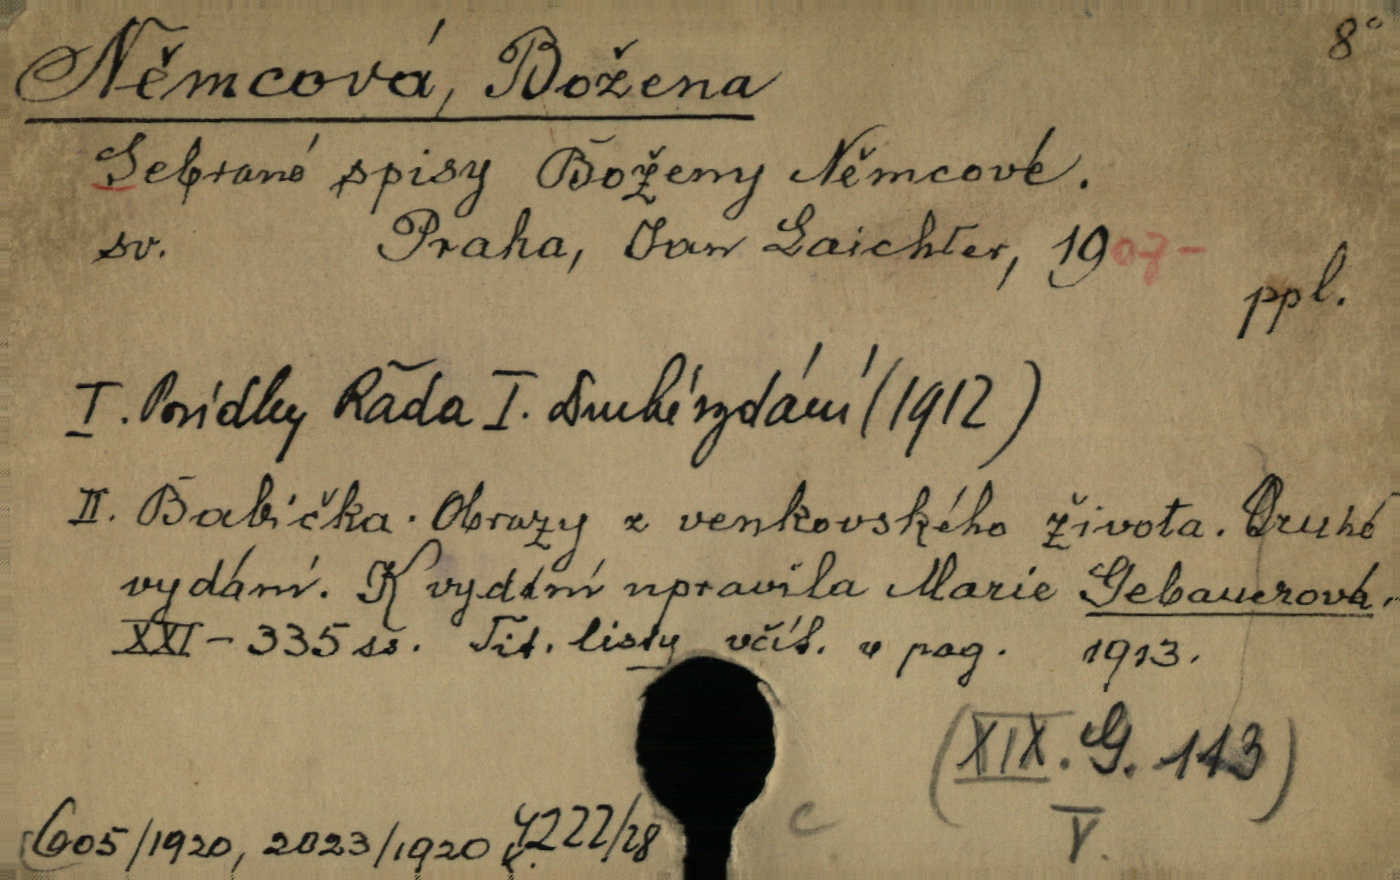 8°
Němcová, Božena
Sebrané spisy Boženy Němcové.
sv. Praha, Jan Laichter, 1907-
ppl.
I. Povídky Řada I. Druhé vydání (1912)
II. Babička. Obrazy z venkovského života. Druhé
vydání. K vydání upravila Marie Gebauerová.
XXI - 335 ss. Tit. listy včít. v pag. 1913.
(XIX. G. 113)
V.
605/1920, 2023/1920 4222/28
c